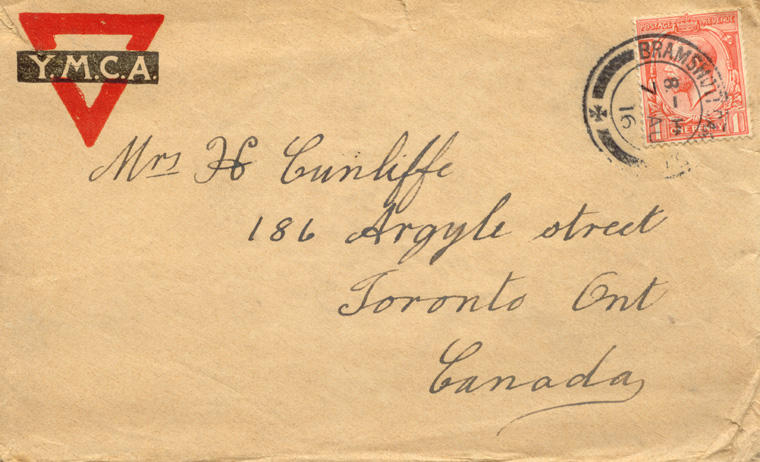 Y.M.C.A.
POSTAGE REVENUE
BRAMSHOTT
8 –
7 AU
16
Mrs H Cunliffe
186 Argyle street
Toronto Ont
Canada